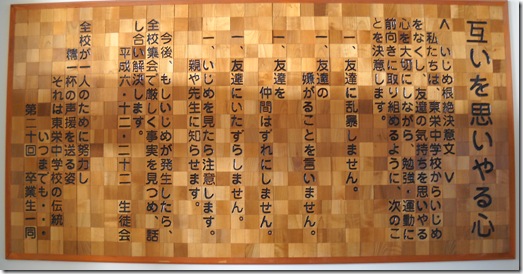 互いを思いやる心
＜いじめ根絶決意文＞
私たちは、東栄中学校からいじめ
をなくし、友達の気持ちを思いやる
心を大切にしながら、勉強・運動に
前向きに取り組めるように、次のこ
とを決意します。
一、友達に乱暴しません。
一、友達の
嫌がることを言いません。
一、友達を
仲間はずれにしません。
一、友達にいたずらしません。
一、いじめを見たら注意します。
親や先生に知らせます。
今後、もしいじめが発生したら、
全校集会で厳しく事実を見つめ、話
し合い解決します。
平成六・十二・二十二　生徒会
全校が一人のために努力し
精一杯の声援を送る姿
いつまでも・・・
それは東栄中学校の伝統
第二十回　卒業生一同